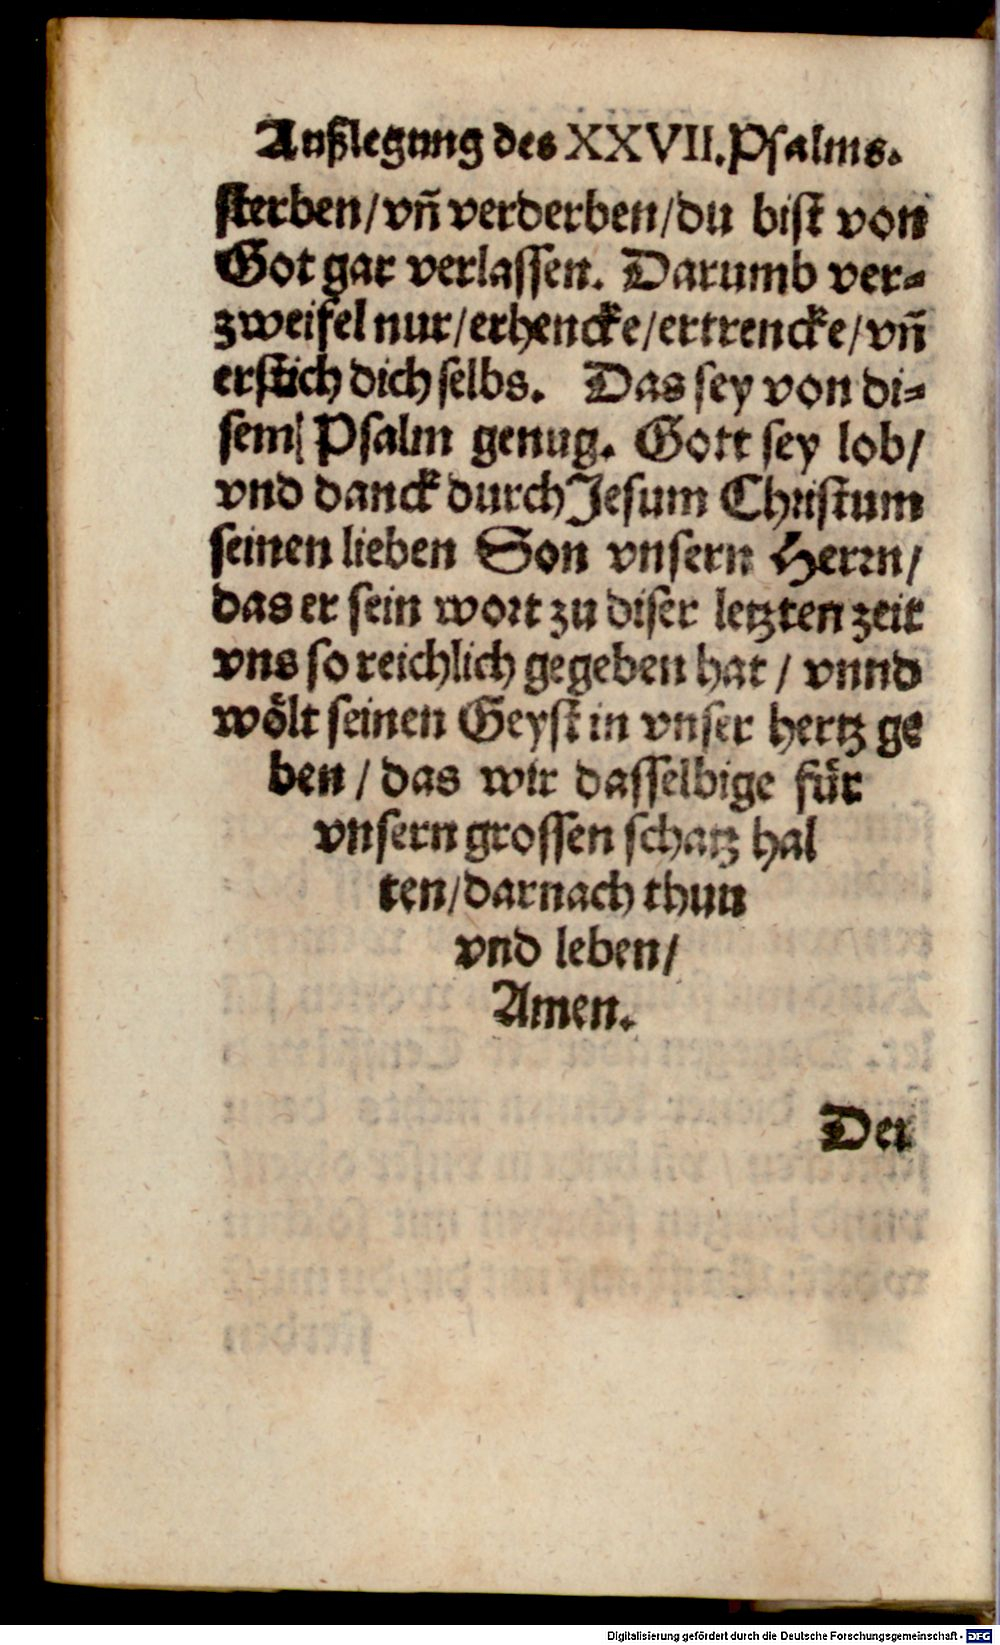 Außlegung des XXVII. Psalms.
sterben/ vñ verderben/ du bist von
Got gar verlassen. Darumb ver-
zweifel nur/ erhencke/ ertrencke/ vñ
erstich dich selbs. Das sey von di-
sem Psalm genug. Gott sey lob/
vnd danck durch Jesum Christum
seinen lieben Son vnsern Herrn/
das er sein wort zu diser letzten zeit
vns so reichlich gegeben hat / vnnd
wölt seinen Geyst in vnser hertz ge
ben / das wir dasselbige für
vnsern grossen schatz hal
ten/ darnach thun
vnd leben/
Amen.
Der
Digitalisierung gefördert durch die Deutsche Forschungsgemeinschaft - DFG